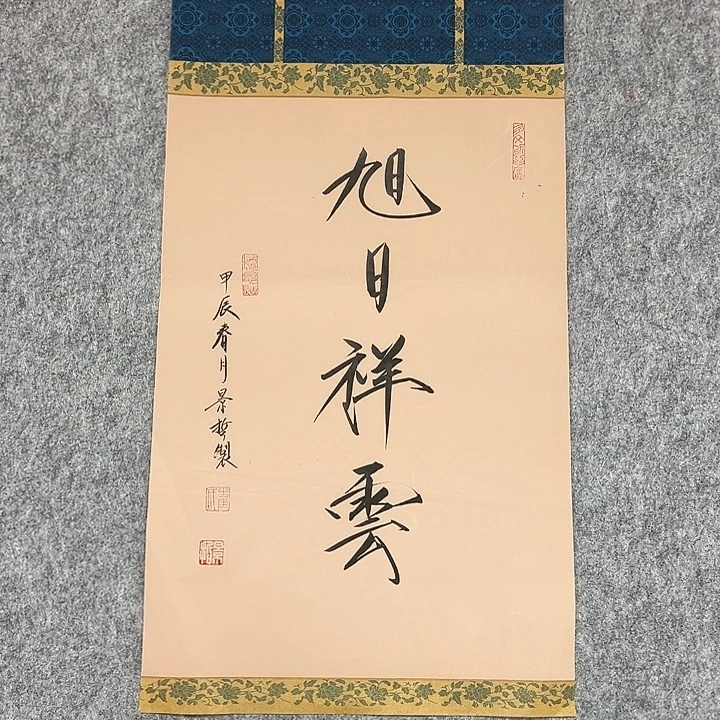 旭日祥雲
甲辰春月景哲製